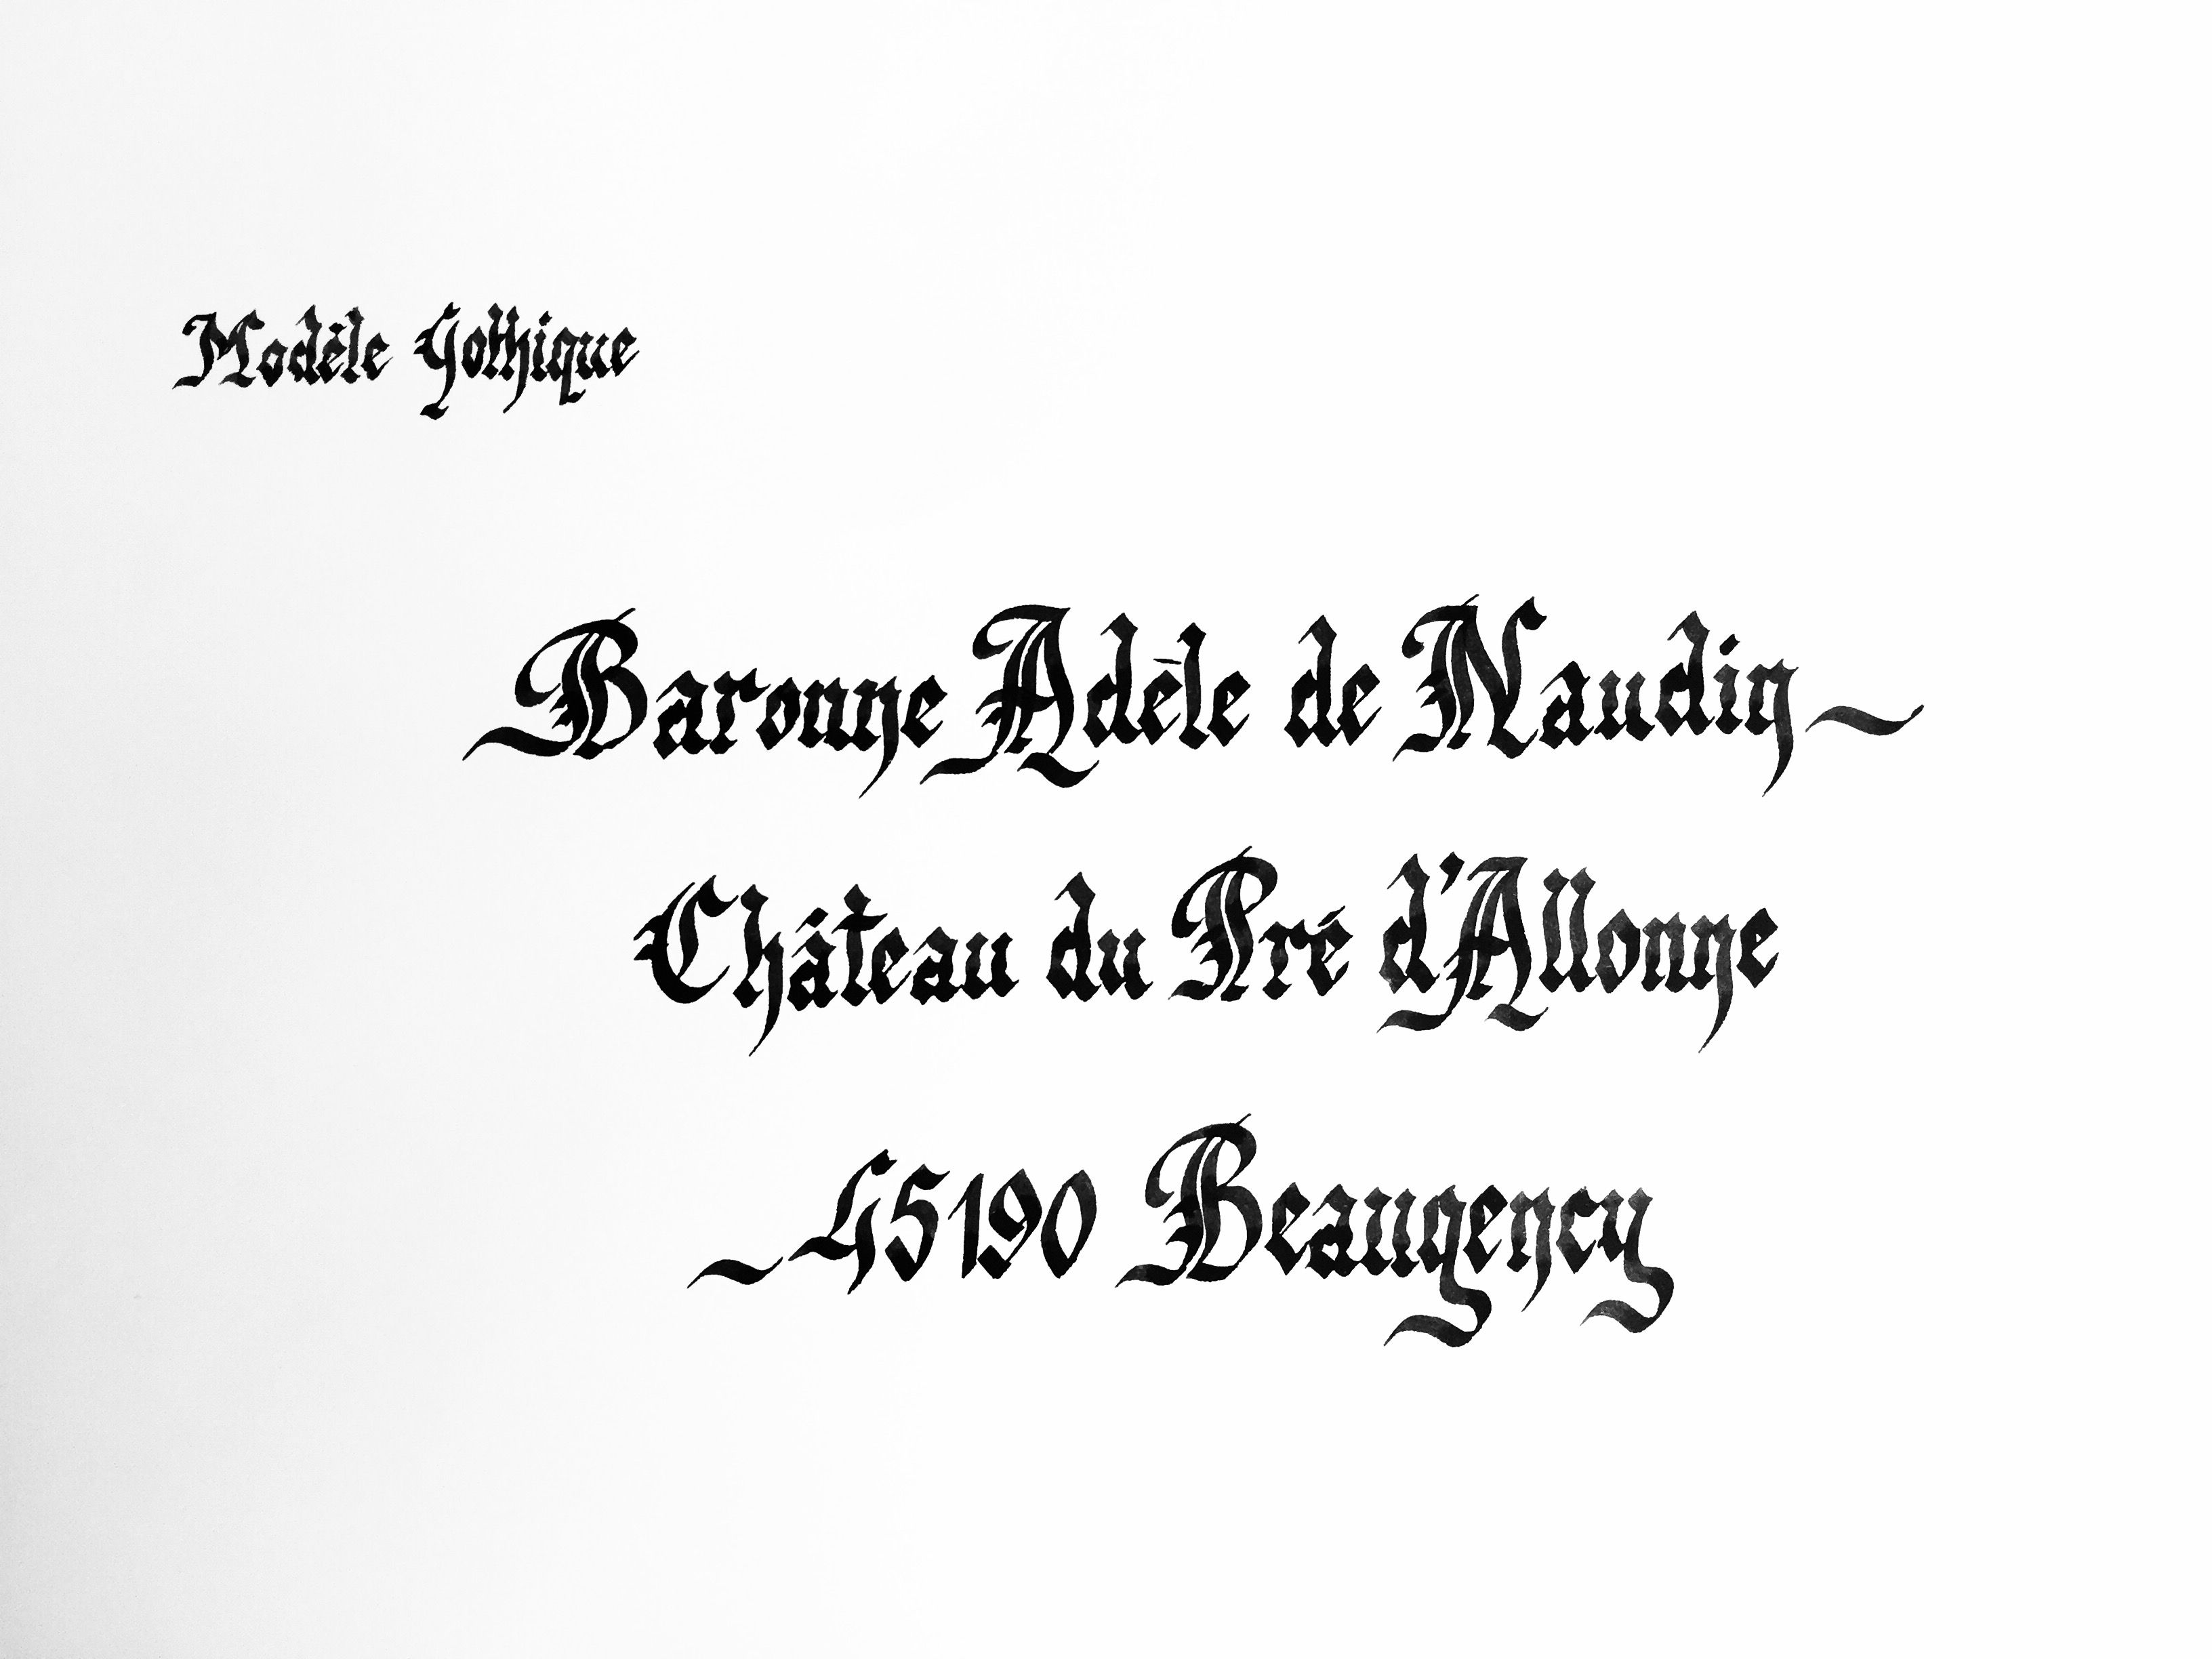 Modèle Gothique
Baronne Adèle de Naudin
Château du Pré d'Allonne
45190 Beaugency